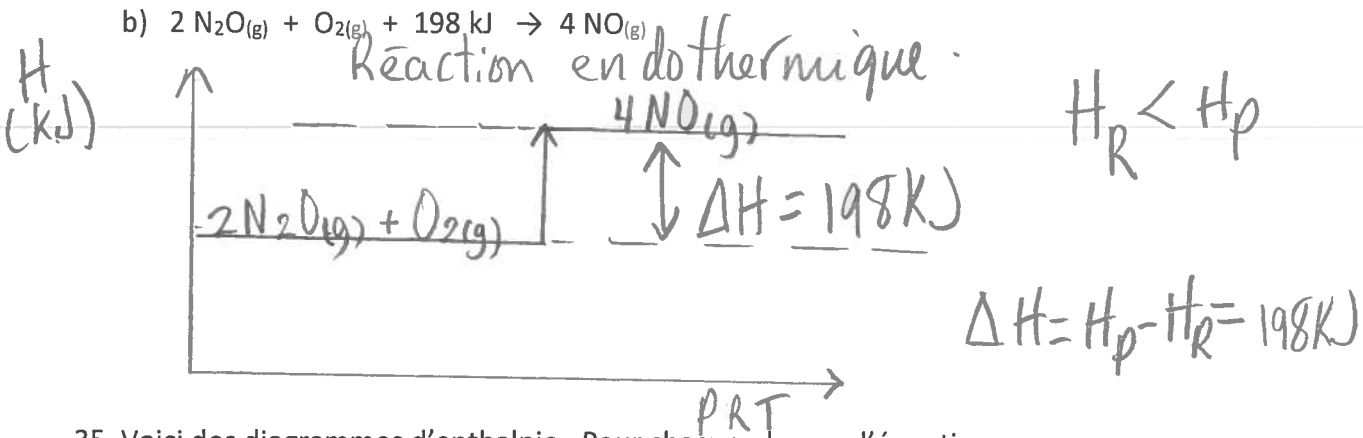 b) 2 N₂O(g) + O₂(g) + 198 kJ → 4 NO(g)
Réaction endothermique.
H
(kJ)
4NO(g)
HR < Hp
2N₂O(g) + O₂(g)
ΔH = 198KJ
ΔH = Hp - HR = 198KJ
PRT
35. Voici des diagrammes d'enthalpie. Pour